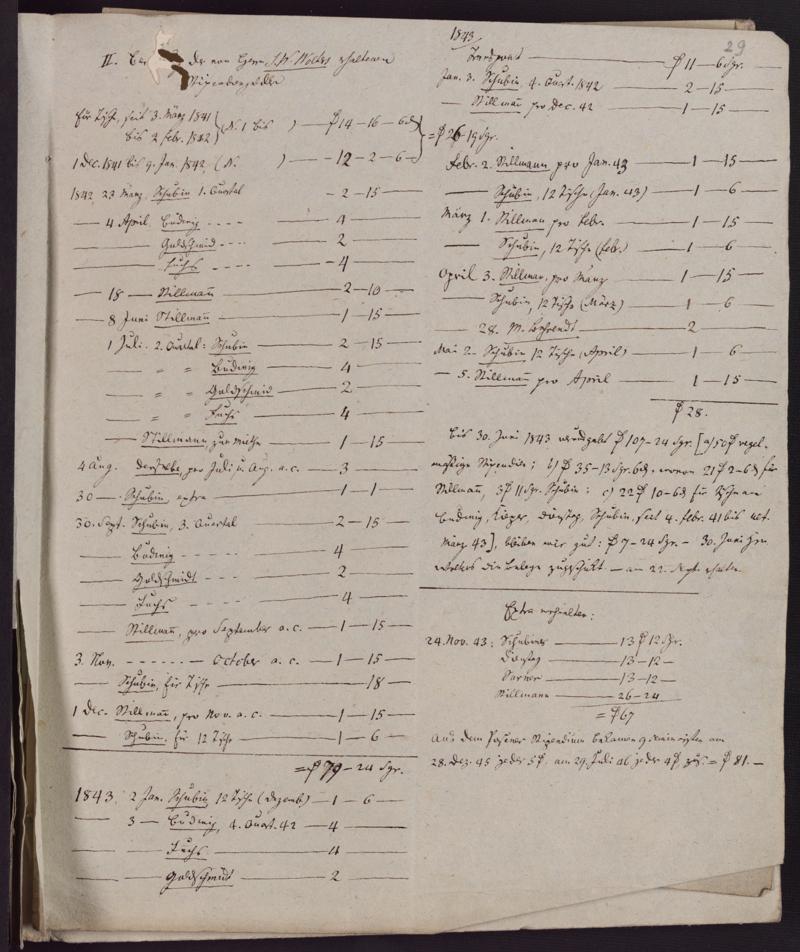 II. der von Herrn erhaltenen
Stipendiengelder
für Tische, seit 3. März 1841
bis 2 Febr. 1842 (N. 1 bis ) — ₰ 14 — 16 — 6 ₰
= ₰ 26 19 Sgr.
1 Dec. 1841 bis 9. Jan. 1842 (N. ) — 12 — 2 — 6
1842 23 März, Schubin 1. Quartal — 2 — 15 —
— 4 April, Budwig - - - - — 4 —
— Goldschmid - - - — 2 —
— Fuchs - - - - — 4 —
— 18 — Stillmann — 2 — 10 —
— 8 Juni Stillmann — 1 — 15 —
1 Juli. 2. Quartal: Schubin — 2 — 15 —
— " " Budwig — 4 —
— " " Goldschmid — 2 —
— " " Fuchs — 4 —
— Stillmann, zur Miethe — 1 — 15 —
4 Aug. derselbe, pro Juli u. Aug. a. c. — 3 —
30 — Schubin, extra — 1 — 1 —
30. Sept. Schubin, 3. Quartal — 2 — 15 —
— Budwig - - - - — 4 —
— Goldschmidt - - - — 2 —
— Fuchs - - - — 4 —
— Stillmann, pro September a. c. — 1 — 15 —
3. Nov. - - - - - - — October a. c. — 1 — 15 —
— Schubin, für Tische — 18 —
1 Dec. Stillmann, pro Nov. a. c. — 1 — 15 —
— Schubin, für 12 Tische — 1 — 6 —
= ₰ 79 — 24 Sgr.
1843. 2 Jan. Schubin, 12 Tische (Dezemb.) — 1 — 6 —
3 — Budwig, 4. Quart. 42 — 4 —
— Fuchs — 4 —
— Goldschmidt — 2 —
29
1843
Transport — ₰ 11 — 6 Sgr.
Jan. 3. Schubin, 4. Quart. 1842 — 2 — 15
— Stillmann pro Dec. 42 — 1 — 15
Febr. 2. Stillmann pro Jan. 43 — 1 — 15
— Schubin, 12 Tische (Jan. 43) — 1 — 6
März 1. Stillman pro Febr. — 1 — 15
— Schubin, 12 Tische (Febr.) — 1 — 6
April 3. Stillman, pro März — 1 — 15
— Schubin, 12 Tische (März) — 1 — 6
— 28. M. Behrendt — 2 —
Mai 2. Schubin 12 Tische (April) — 1 — 6
— 5. Stillmann pro April — 1 — 15
₰ 28.
Bis 30. Juni 1843 ausgegeben ₰ 107 — 24 Sgr. [a) 50 ₰ regel-
mäßige Stipendien; b) ₰ 35 — 13 Sgr. 6 ₰, wovon 21 ₰ 2 — 6 ₰ für
Stillmann, 3 ₰ 11 Sgr. Schubin; c) 22 ₰ 10 — 6 ₰ für Tische an
Budwig, Schubin, seit 4. Febr. 41 bis
März 43], bleiben mir gut: ₰ 7 — 24 Sgr. — 30. Juni
die Belege zugeschickt — am 22. Sept. erhalten
Extra erhielten:
24. Nov. 43: Schubiner — 13 ₰ 12 Sgr.
Dienstag — 13 — 12 —
— 13 — 12 —
Stillmann — 26 — 24
= ₰ 67
Aus dem Posener Stipendium bekamen am
28. Dez. 45 jeder 5 ₰, am 29. Juli 46 jeder 4 ₰ = ₰ 81. —